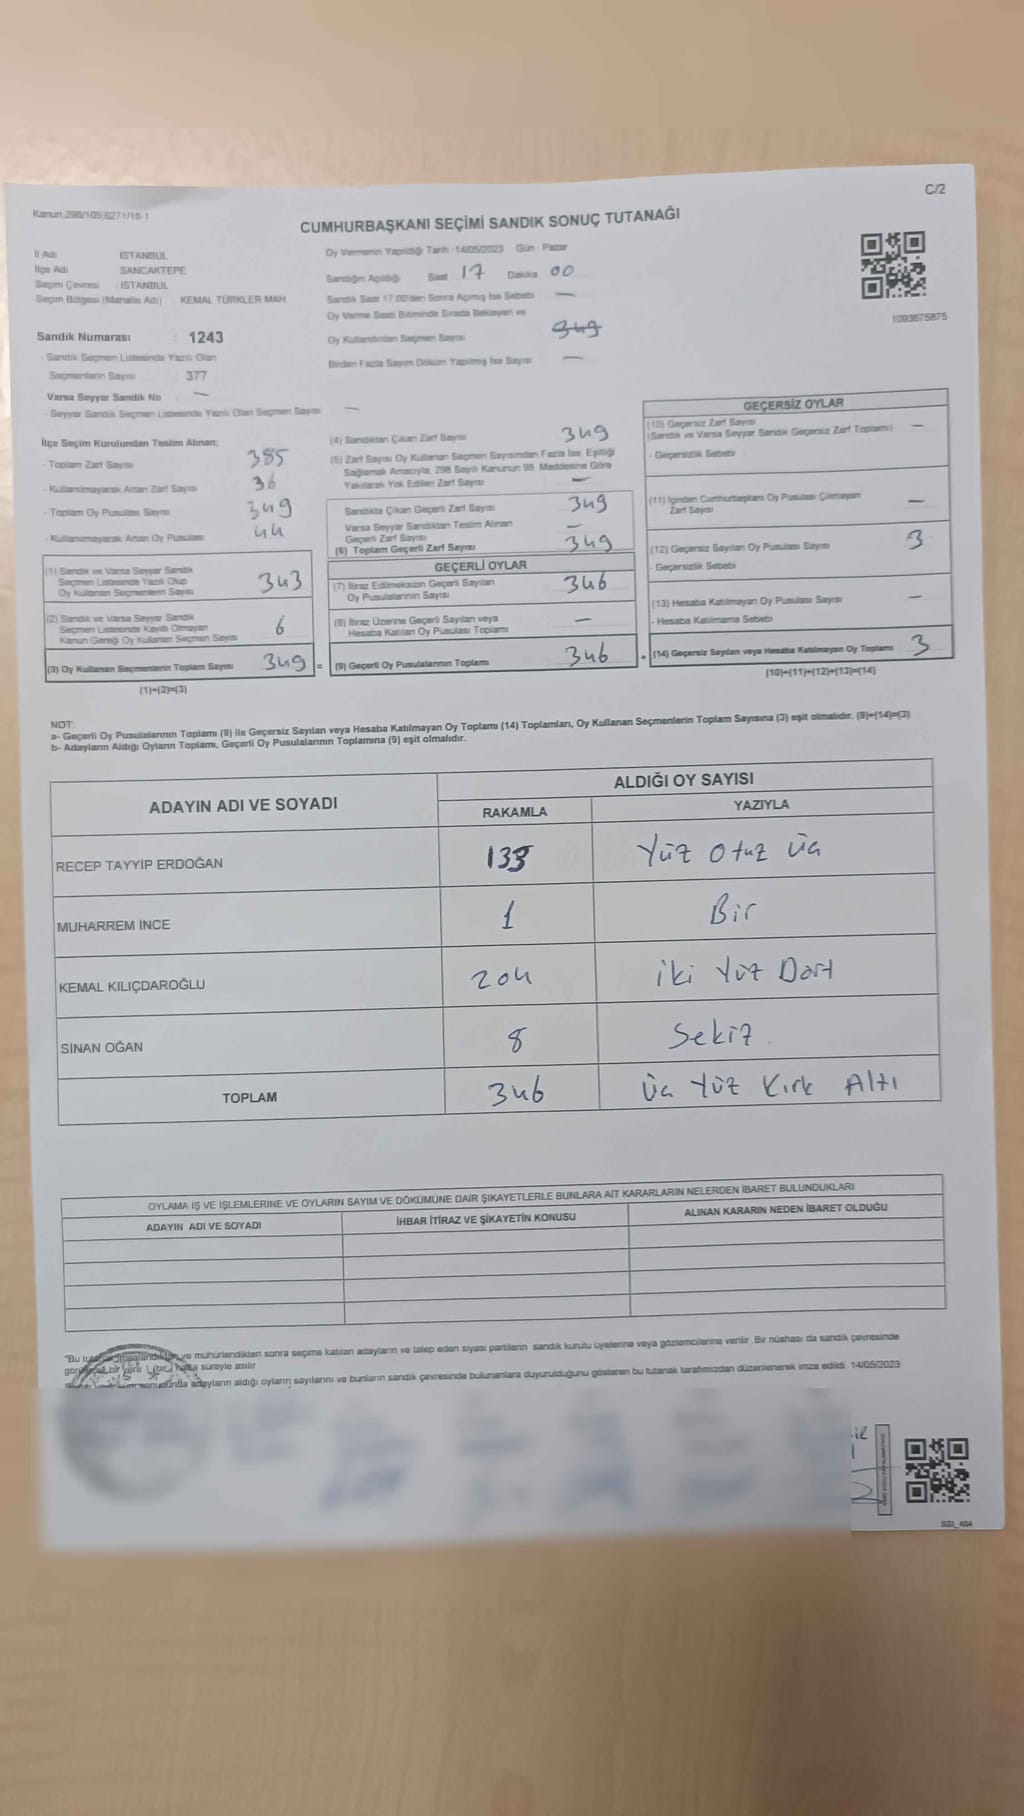 C/2
Kanun:298/105;6271/18-1
CUMHURBAŞKANI SEÇİMİ SANDIK SONUÇ TUTANAĞI
İl Adı : İSTANBUL
İlçe Adı : SANCAKTEPE
Seçim Çevresi : İSTANBUL
Seçim Bölgesi (Mahalle Adı) : KEMAL TÜRKLER MAH
Sandık Numarası : 1243
- Sandık Seçmen Listesinde Yazılı Olan
Seçmenlerin Sayısı : 377
Varsa Seyyar Sandık No —
- Seyyar Sandık Seçmen Listesinde Yazılı Olan Seçmen Sayısı —
Oy Vermenin Yapıldığı Tarih :14/05/2023 Gün : Pazar
Sandığın Açıldığı Saat 17 Dakika 00
Sandık Saat 17:00'den Sonra Açılmış İse Sebebi —
Oy Verme Saati Bitiminde Sırada Bekleyen ve
Oy Kullandırılan Seçmen Sayısı 349
Birden Fazla Sayım Döküm Yapılmış İse Sayısı —
1093675875
İlçe Seçim Kurulundan Teslim Alınan;
- Toplam Zarf Sayısı 385
- Kullanılmayarak Artan Zarf Sayısı 36
- Toplam Oy Pusulası Sayısı 349
- Kullanılmayarak Artan Oy Pusulası 44
(1) Sandık ve Varsa Seyyar Sandık
Seçmen Listesinde Yazılı Olup
Oy Kullanan Seçmenlerin Sayısı 343
(2) Sandık ve Varsa Seyyar Sandık
Seçmen Listesinde Kayıtlı Olmayan
Kanun Gereği Oy Kullanan Seçmen Sayısı 6
(3) Oy Kullanan Seçmenlerin Toplam Sayısı 349 =
(1)+(2)=(3)
(4) Sandıktan Çıkan Zarf Sayısı 349
(5) Zarf Sayısı Oy Kullanan Seçmen Sayısından Fazla İse, Eşitliği
Sağlamak Amacıyla, 298 Sayılı Kanunun 98. Maddesine Göre
Yakılarak Yok Edilen Zarf Sayısı —
Sandıkta Çıkan Geçerli Zarf Sayısı 349
Varsa Seyyar Sandıktan Teslim Alınan
Geçerli Zarf Sayısı —
(6) Toplam Geçerli Zarf Sayısı 349
GEÇERLİ OYLAR
(7) İtiraz Edilmeksizin Geçerli Sayılan
Oy Pusulalarının Sayısı 346
(8) İtiraz Üzerine Geçerli Sayılan veya
Hesaba Katılan Oy Pusulası Toplamı —
(9) Geçerli Oy Pusulalarının Toplamı 346 +
GEÇERSİZ OYLAR
(10) Geçersiz Zarf Sayısı
(Sandık ve Varsa Seyyar Sandık Geçersiz Zarf Toplamı) —
- Geçersizlik Sebebi
(11) İçinden Cumhurbaşkanı Oy Pusulası Çıkmayan
Zarf Sayısı —
(12) Geçersiz Sayılan Oy Pusulası Sayısı 3
- Geçersizlik Sebebi
(13) Hesaba Katılmayan Oy Pusulası Sayısı —
- Hesaba Katılmama Sebebi
(14) Geçersiz Sayılan veya Hesaba Katılmayan Oy Toplamı 3
(10)+(11)+(12)+(13)=(14)
NOT:
a- Geçerli Oy Pusulalarının Toplamı (9) ile Geçersiz Sayılan veya Hesaba Katılmayan Oy Toplamı (14) Toplamları, Oy Kullanan Seçmenlerin Toplam Sayısına (3) eşit olmalıdır. (9)+(14)=(3)
b- Adayların Aldığı Oyların Toplamı, Geçerli Oy Pusulalarının Toplamına (9) eşit olmalıdır.
ADAYIN ADI VE SOYADI ALDIĞI OY SAYISI
RAKAMLA YAZIYLA
RECEP TAYYİP ERDOĞAN 133 Yüz Otuz Üç
MUHARREM İNCE 1 Bir
KEMAL KILIÇDAROĞLU 204 iki Yüz Dört
SİNAN OĞAN 8 Sekiz
TOPLAM 346 Üç Yüz Kırk Altı
OYLAMA İŞ VE İŞLEMLERİNE VE OYLARIN SAYIM VE DÖKÜMÜNE DAİR ŞİKAYETLERLE BUNLARA AİT KARARLARIN NELERDEN İBARET BULUNDUKLARI
ADAYIN ADI VE SOYADI İHBAR İTİRAZ VE ŞİKAYETİN KONUSU ALINAN KARARIN NEDEN İBARET OLDUĞU
*Bu ve mühürlendikten sonra seçime katılan adayların ve talep eden siyasi partilerin sandık kurulu üyelerine veya gözlemcilerine verilir. Bir nüshası da sandık çevresinde
bir yere 1 (bir) hafta süreyle asılır
adayların aldığı oyların sayılarını ve bunların sandık çevresinde bulunanlara duyurulduğunu gösteren bu tutanak tarafımızdan düzenlenerek imza edildi. 14/05/2023
SSI_404